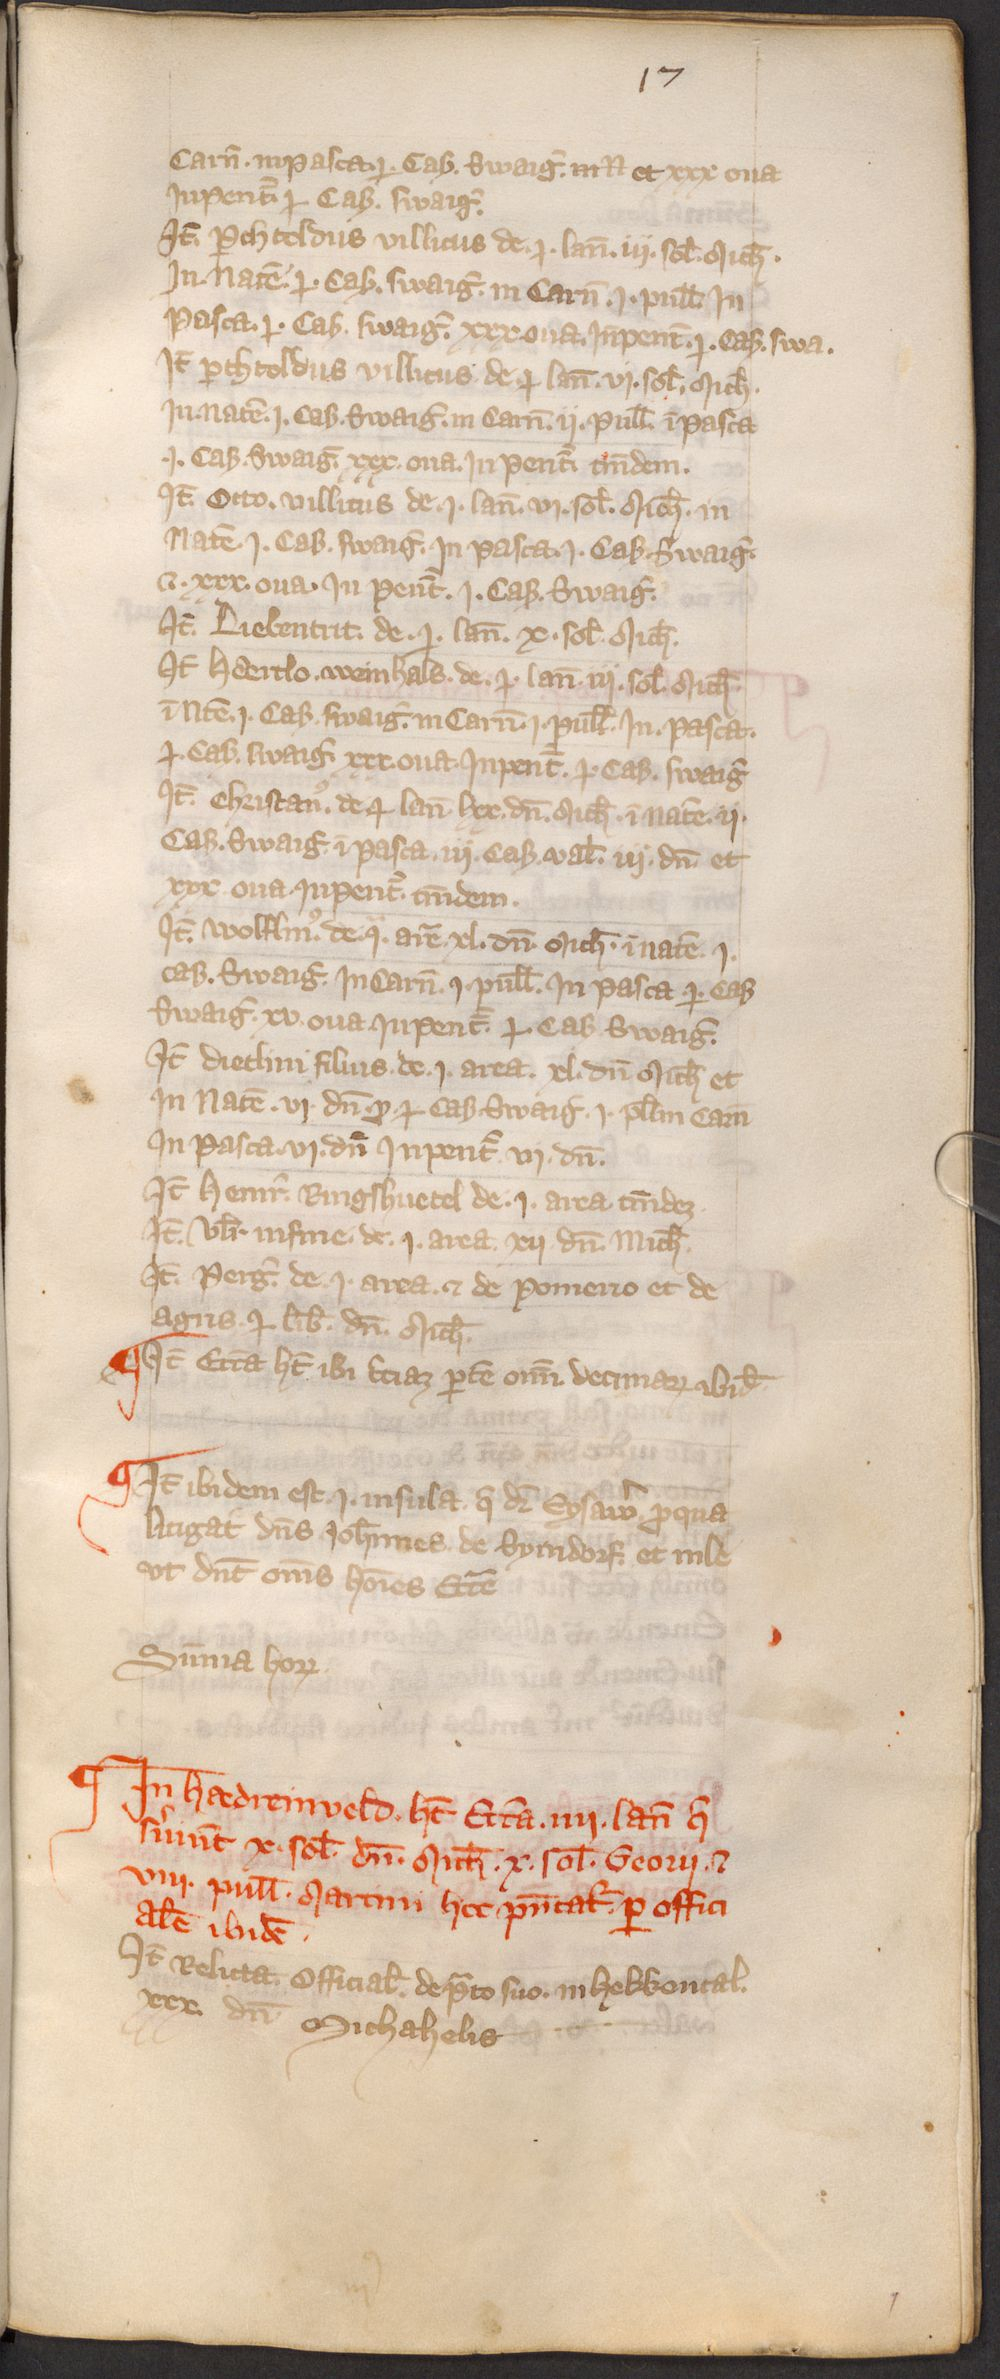 17
Carn̄. in pasca. ꝑ. Cas. Swaig̃. in N et xxx oua
In pent̄. ꝑ Cas. swaig̃.
It̄. ꝑchtoldus villicus de. ꝑ. lan̄. iii. sol̄. Mich̄.
In. Natē. ꝑ. Cas. swaig̃. in Carn̄. j. pull̄. In
Pasca. ꝑ. Cas. swaig̃. xxx. oua. In pent̄. ꝑ. Cas. swa.
It̄ ꝑchtoldus villicus de. ꝑ lan̄. vi. sol̄. Mich̄.
In. natē. j. Cas. Swaig̃. in Carn̄. ii. pull̄. ī pasca
.j. Cas. Swaig̃. xxx. oua. In pent̄. tn̄dem.
It̄. Otto. villicus de. j. lan̄. vi. sol̄. Mich̄. in
Natē. j. Cas. swaig̃. In pasca. j. Cas. Swaig̃.
⁊. xxx. oua. In pent̄. j. Cas. Swaig̃.
It̄. Liebentrit. de. ꝑ. lan̄. x. sol̄. Mich̄.
It̄ Haertlo. weinhals. de. ꝑ. lan̄. iii. sol̄. Mich̄.
ī Ntē. j. Cas. swaig̃. in Carn̄. j. pull̄. In. pasca.
ꝑ. Cas. swaig̃. xxx. oua. In pent̄. ꝑ. Cas. swaig̃
It̄. Christanꝰ. de ꝑ lan̄ lxx. dn̄. Mich̄. ī Natē. ii.
Cas. Swaig̃. ī pasca. iii. Cas. val̄. iii. dn̄. et
xxx oua. In pent̄. tn̄dem.
It̄. Wolflinꝰ. de. arē. xl. dn̄. Mich̄. ī natē. j.
cas. Swaig̃. In Carn̄. j. pull̄. In pasca ꝑ. Cas
Swaig̃. xv. oua. In pent̄. ꝑ. Cas. Swaig̃.
It̄ dietlini filius. de. j. area. xl. dn̄ Mich̄ et
In Natē. vi. dn̄. ꝓ. ꝑ Cas. Swaig̃. j. pl̄ in Carn̄
In pasca. vi. dn̄ In pent̄. vi. dn̄.
It̄ Heinr̄. Ringshuetel de. j. area tn̄dez.
It̄. Vlr̄. in fine. de. j. area. xii dn̄. Mich̄.
It̄. Perg̃. de. j. area. ⁊ de Pomerio et de
agris. ꝑ lib̄. dn̄. Mich̄.
It̄ Ecc̄a ht̄ ibi t̄ciaz ꝑtē om̄. decimaꝝ. ibid̄.
It̄ ibidem est. j. insula. q̄ dr̄ Eysaw̄. ꝓ qua
litigat dn̄s Joh̄nnes de Symdorf. et inle
vt dn̄t om̄s ho̅ies Ecc̄e
Sum̄a hoꝝ
In Haedreinveld. ht̄ Ecc̄a. iiii. lan̄ q̄
suiunt x. sol̄. dn̄. Mich̄. x. sol̄. Georii. ⁊
viii. pull̄. Martini hec pn̄tat̄. ꝑ offici
alē ibidē.
It̄ Relicta. Official̄. de p̃to suo. in hekkental.
xxx. dn̄ Michahelis